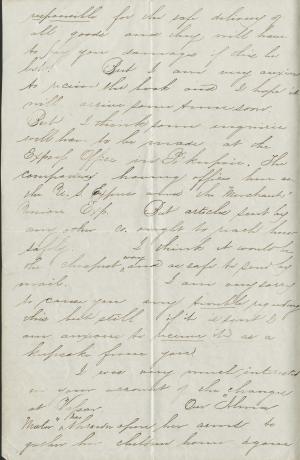 responsible for the safe delivery of
all goods and they will have
to pay you damages if this be
lost. But I am very anxious
to receive the book and I hope it
will arrive some time soon.
But I think some enquiries
will have to be made at the
Express Office in P'keepsie. The
companies having offices here are
the U.S Express and the Merchants'
Union Exp. But articles sent by
any other co. ought to reach here
safely. I think it would be
the cheapest way and as safe to send by
mail. I am very sorry
to cause you any trouble regarding
this but still if it is sent I
am anxious to receive it as a
keepsake from you.
I was very much interested
in your account of the changes
at Vassar. Our "Alma
Mater" has thrown open her arms to
gather her children home again